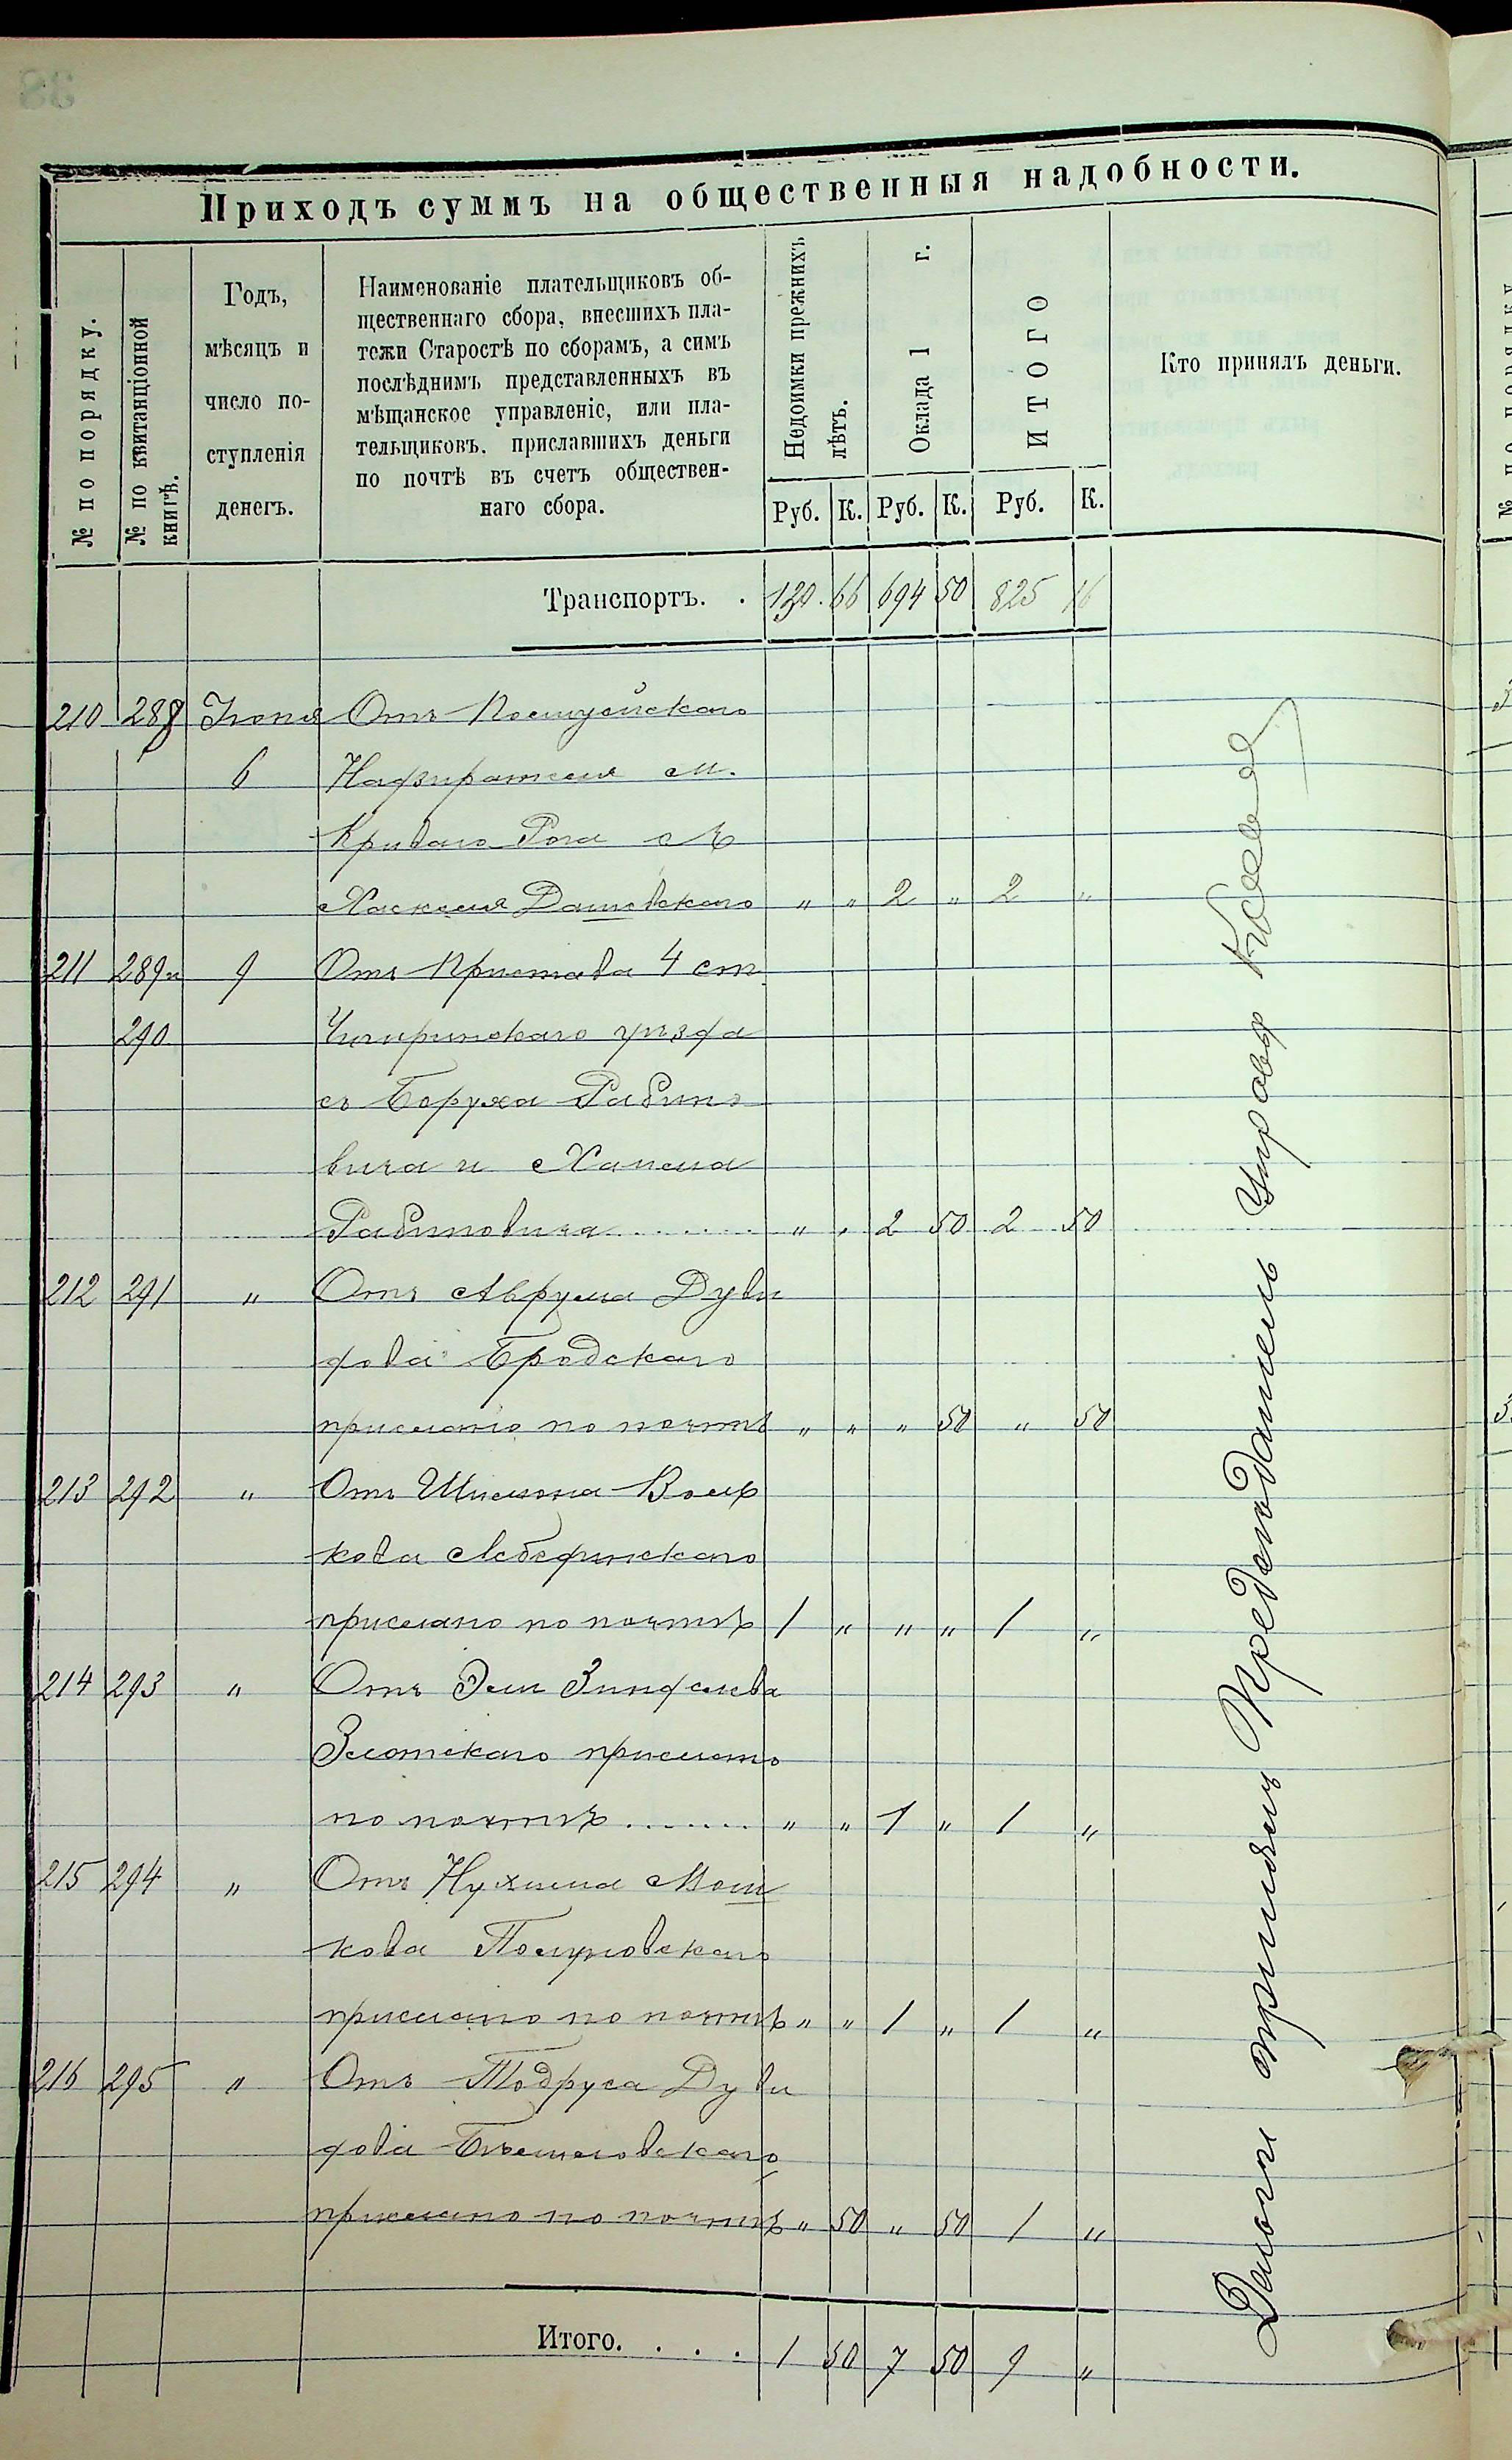 Приходъ суммъ на общественныя надобности.
№ по порядку.
№ по квитанціонной книгѣ.
Годъ,
мѣсяцъ и
число по-
ступленія
денегъ.
Наименованіе плательщиковъ об-
щественнаго сбора, внесшихъ пла-
тежи Старостѣ по сборамъ, а симъ
послѣднимъ представленныхъ въ
мѣщанское управленіе, или пла-
тельщиковъ, приславшихъ деньги
по почтѣ въ счетъ обществен-
наго сбора.
Недоимки прежнихъ лѣтъ.
Оклада 1 г.
ИТОГО
Кто принялъ деньги.
Руб. К. Руб. К. Руб. К.
Транспортъ. . 130 66 694 50 825 16
210 288 Іюня Отъ Полицейскаго
6 Надзирателя м.
Криваго Рога съ
Хаскеля Дашевскаго " " 2 " 2 "
211 289 и 9 Отъ Пристава 4 ст.
290 Чигиринскаго уѣзда
съ Боруха Рабино
вича и Хаима
Рабиновича " " 2 50 2 50
212 291 " Отъ Аврума Дуви
дова Бродскаго
прислано по почтѣ " " " 50 " 50
213 292 " Отъ Шимона Воль
кова Лебединскаго
прислано по почтѣ 1 " " " 1 "
214 293 " Отъ Эли Зинделева
Златскаго прислано
по почтѣ " " 1 " 1 "
215 294 " Отъ Нухима Мош
кова
прислано по почтѣ " " 1 " 1 "
216 295 " Отъ Тодруса Дуви
дова
прислано по почтѣ " 50 " 50 1 "
Итого. . . . 1 50 7 50 9 "
Деньги принялъ Предсѣдатель Управы